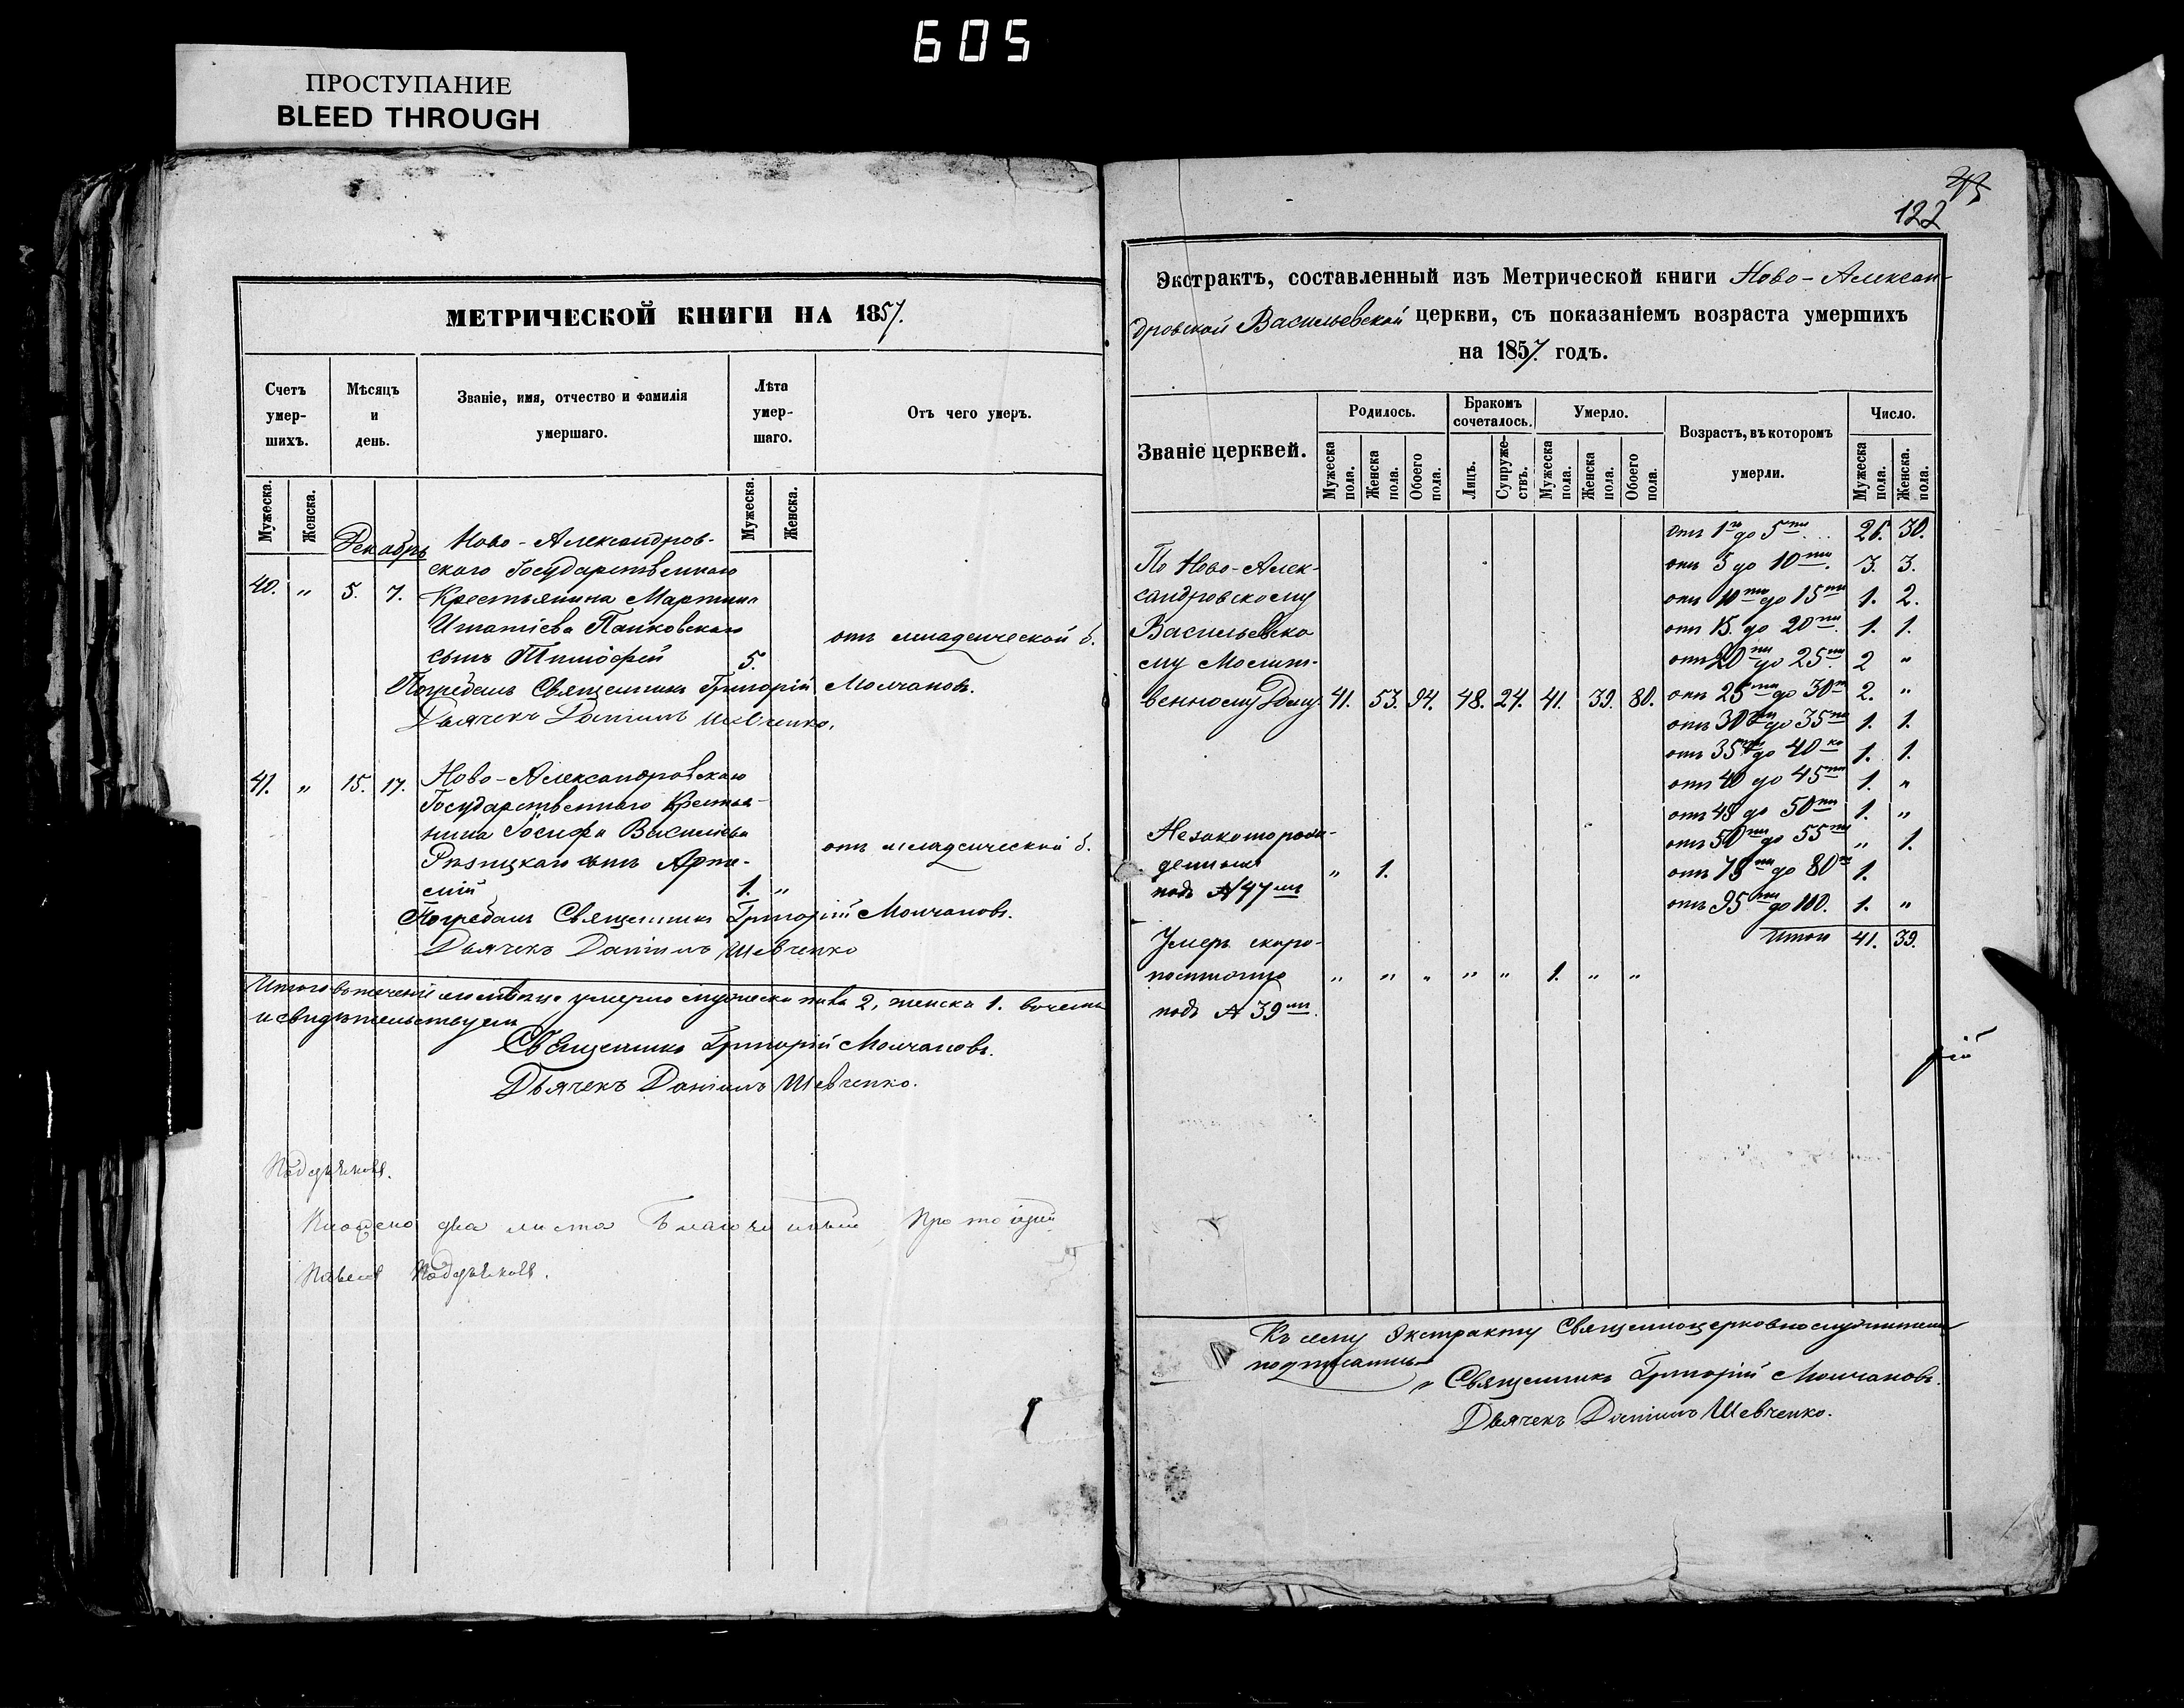 605
ПРОСТУПАНИЕ
BLEED THROUGH
МЕТРИЧЕСКОЙ КНИГИ НА 1857.
Счетъ умер-шихъ.
Мѣсяцъ и день.
Званіе, имя, отчество и фамилія умершаго.
Лѣта умер-шаго.
Отъ чего умеръ.
Мужеска. Женска. Мужеска. Женска.
Декабрь
Ново-Александров-
скаго Государственнаго
40. " 5. 7. Крестьянина Мартина
Игнатіева Панковскаго
сынъ Тимофей 5. отъ младенческой б.
Погребалъ Священникъ Григорій Молчановъ.
Дьячекъ Даніилъ Шевченко.
41. " 15. 17. Ново-Александровскаго
Государственнаго Крестья-
нина Іосифа Василіева
сынъ Арте- отъ младенческой б.
мій 1. "
Погребалъ Священникъ Григорій Молчановъ.
Дьячекъ Даніилъ Шевченко
Итого въ теченіи мѣсяца умерло мужеска пола 2, женска 1. въ чемъ
и свидѣтельствуем
Священникъ Григорій Молчановъ.
Дьячекъ Даніилъ Шевченко.
два листа Благочинный Протоіерей
Павелъ
122
Экстрактъ, составленный изъ Метрической книги Ново-Алексан-
дровской Васильевской церкви, съ показаніемъ возраста умершихъ
на 1857 годъ.
Званіе церквей.
Родилось.
Бракомъ сочеталось.
Умерло.
Возрастъ, въ которомъ умерли.
Число.
Мужеска пола. Женска пола. Обоего пола. Лицъ. Супруже-ствъ. Мужеска пола. Женска пола. Обоего пола. Мужеска пола. Женска пола.
По Ново-Алек-
сандровскому
Васильевско
му Молит-
венному Дому 41. 53. 94. 48. 24. 41. 39. 80.
Отъ 1го до 5ти 26. 30.
отъ 5 до 10ти. 3. 3.
отъ 10ти до 15ти 1. 2.
отъ 15. до 20ти 1. 1.
отъ 20ти до 25ти 2 "
отъ 25ти до 30ти 2. "
отъ 30ти до 35ти 1. 1.
отъ 35ти до 40ка 1. 1.
отъ 40 до 45ти 1. "
отъ 45 до 50ти 1. "
отъ 50ти до 55ти " 1.
отъ 75ти до 80ти 1.
отъ 95ти до 100. 1. "
Итого 41. 39.
Незаконорож-
денныхъ
подъ № 47мъ " 1.
Умеръ скоро-
постижно " " " " " 1. " "
подъ № 39мъ.
Къ сему Экстракту Священноцерковнослужители
подписались
Священникъ Григорій Молчановъ.
Дьячекъ Даніилъ Шевченко.